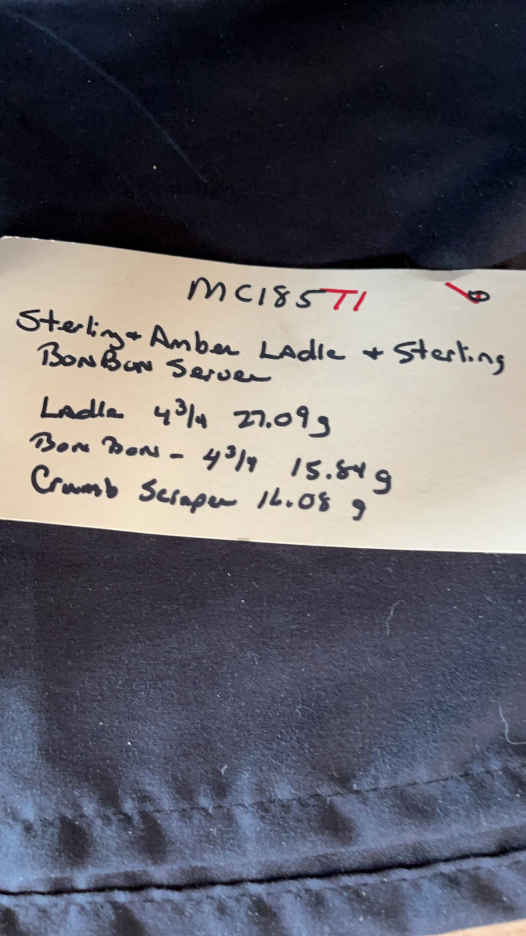 MC185T1
Sterling + Amber Ladle + Sterling
BonBon Server
Ladle 4 3/4 27.09g
Bon Bon - 4 3/4 15.84g
Crumb Scraper 16.08 g